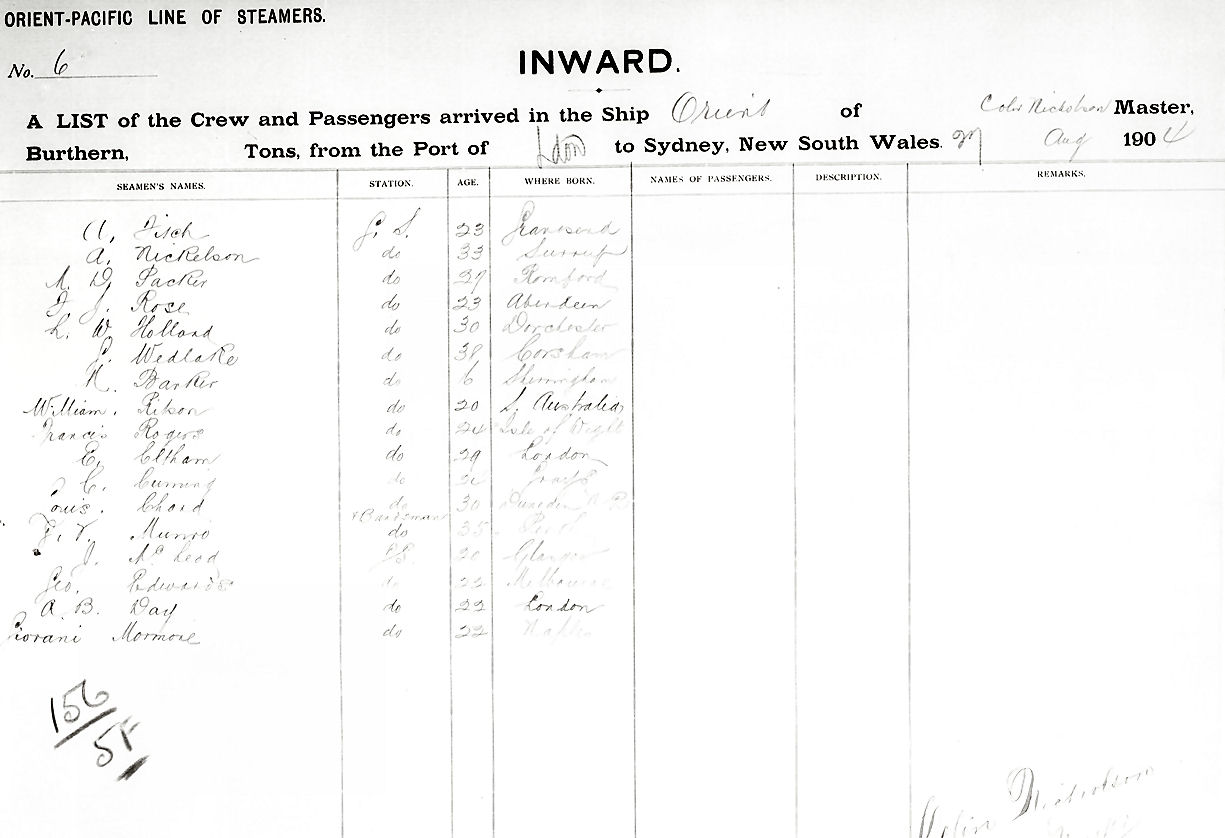 ORIENT-PACIFIC LINE OF STEAMERS.
No. 6
INWARD.
A LIST of the Crew and Passengers arrived in the Ship Orient of Colin Nicholson Master,
Burthern, Tons, from the Port of Ldon to Sydney, New South Wales. Aug 1904
SEAMEN'S NAMES. STATION. AGE. WHERE BORN. NAMES OF PASSENGERS. DESCRIPTION. REMARKS.
A. Fitch G. S. 23 Gravesend
A. Nickelson do 33 Surrey
D. Packer do Romford
F. J. Rose do 23 Aberdeen
L. W. Holland do 30 Dorchester
Wedlake do 38 Corsham
Barker do Sherringham
William. Ritson do 20 S. Australia
Francis Rogers do 24 Isle of Wight
E. Eltham do 29 London
C. Cuming do Grays
Louis. Chard do 30 Dunedin
& Bandsman
Munro do 35
J. McLeod 20 Glasgow
Geo. Edwards do 22 Melbourne
A. B. Day do 22 London
Giovani Mormone do 22 Naples
156
Colin Nicholson